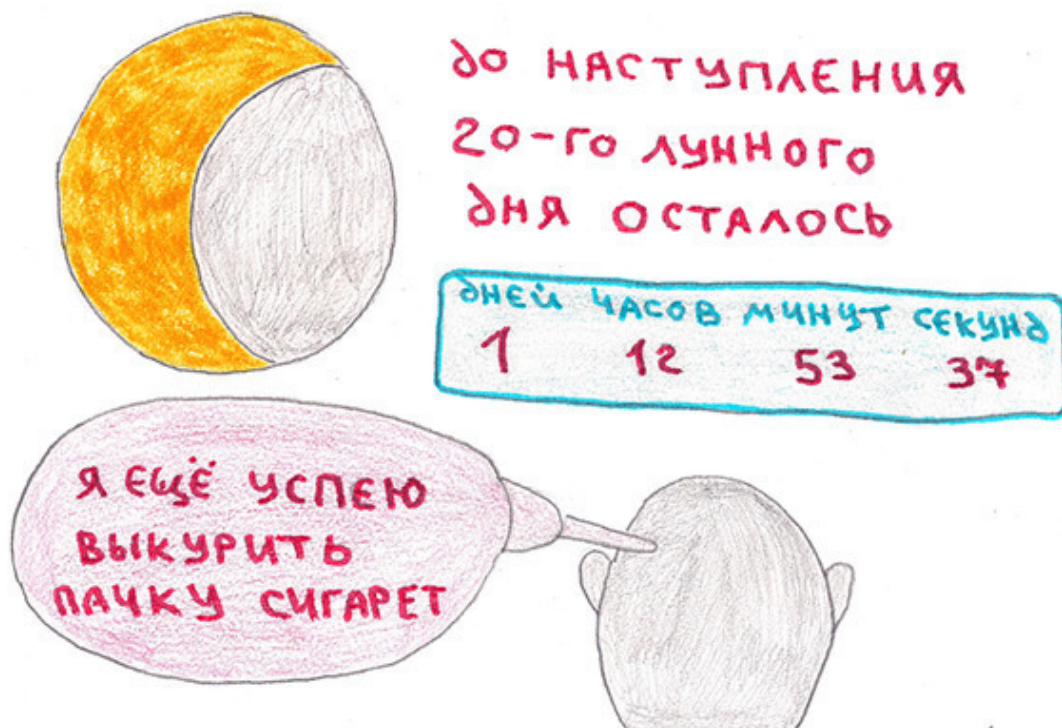 до НАСТУПЛЕНИЯ
20-ГО ЛУННОГО
дНЯ ОСТАЛОСЬ
дНЕЙ ЧАСОВ МИНУТ СЕКУНд
1 12 53 37
Я ЕЩЁ УСПЕЮ
ВЫКУРИТЬ
ПАЧКУ СИГАРЕТ